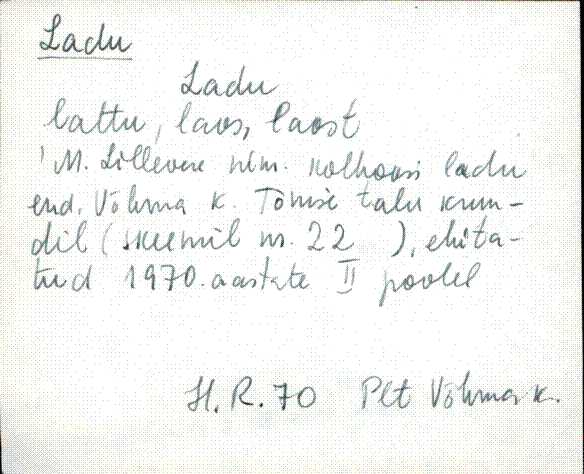 Ladu
Ladu
lattu, laos, laost
' M. Lillevere nim. kolhoosi ladu
end. Võhma k. Tõnise talu krun-
dil (skeemil nr. 22 ), ehita-
tud 1970. aastate II poolel
H. R. 70 Plt Võhma k.